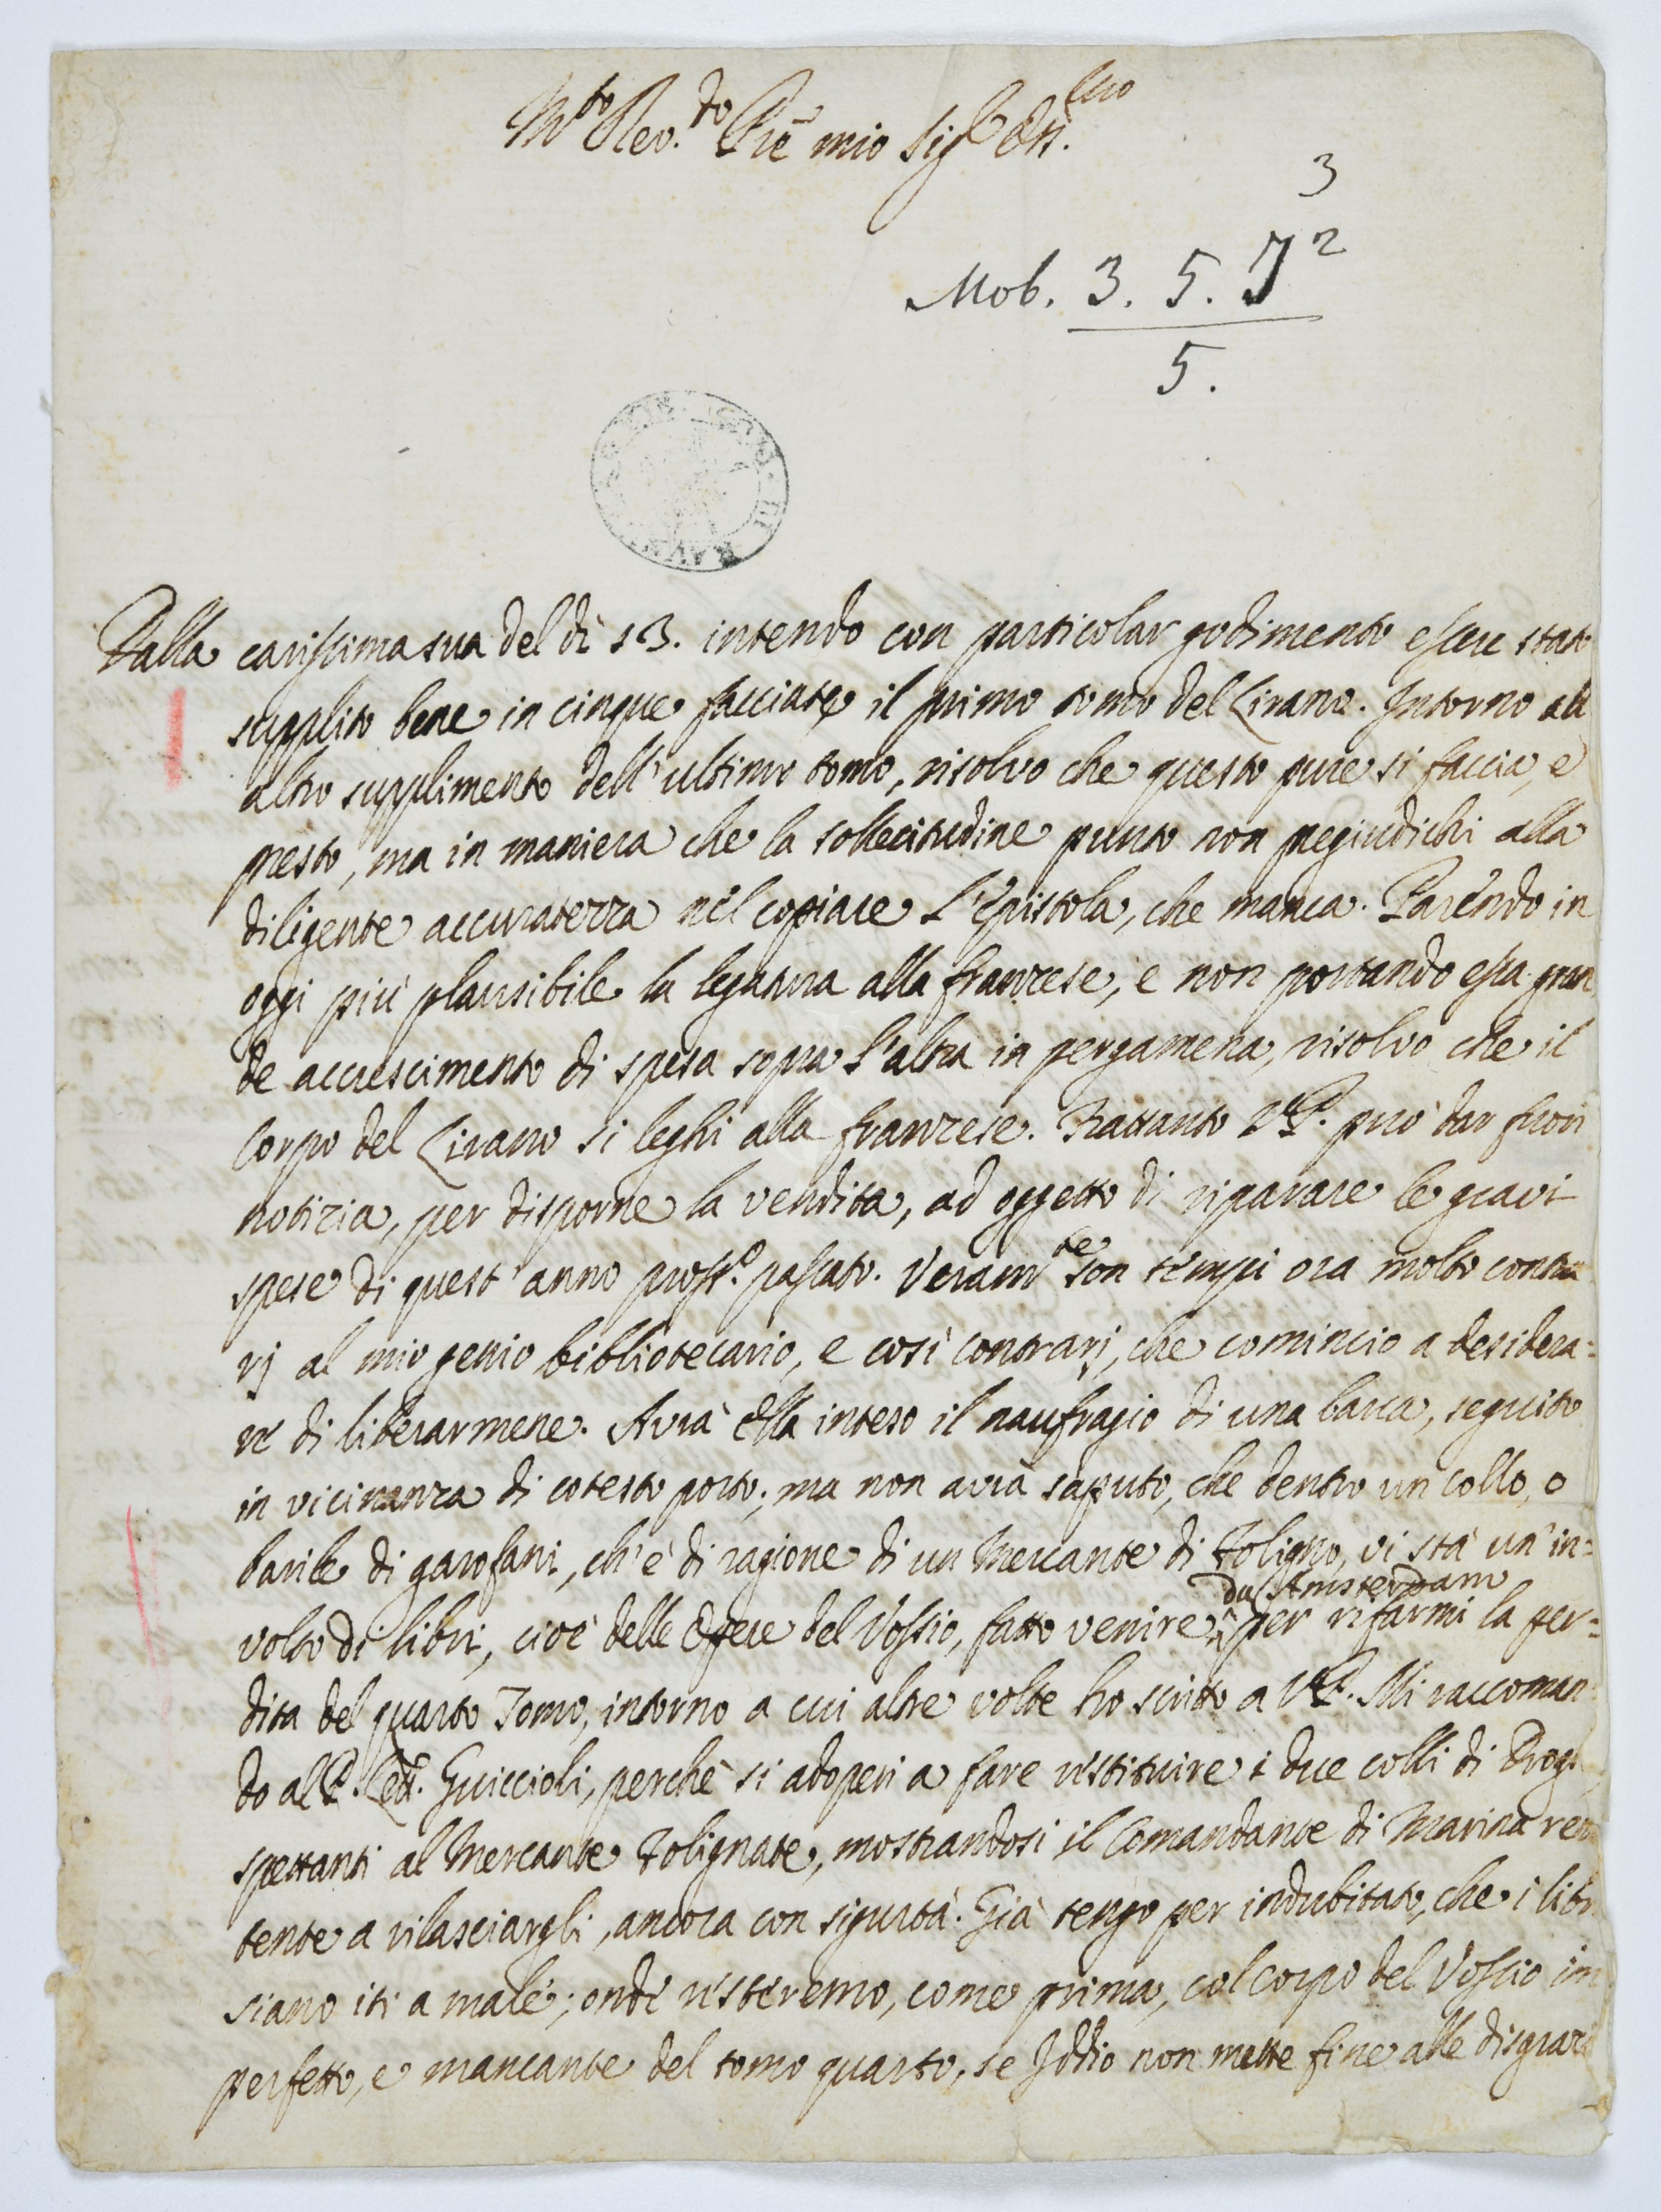 M.to Rev.do Prē mio Sig.re Oss.mo
3
Mob. 3. 5. J 2
5.
Dalla carissima sua del dì 13. intendo con particolar godimento essere stato
supplito bene in cinque facciate il primo tomo del Lirano. Intorno all
altro supplimento dell'ultimo tomo, risolvo che questo pure si faccia, e
presto, ma in maniera che la sollecitudine punto non pregiudichi alla
diligente accuratezza nel copiare l'Epistola, che manca. Parendo in
oggi più plausibile la legatura alla franzese, e non portando essa gran
de accrescimento di spesa sopra l'altra in pergamena, risolvo che il
Corpo del Lirano si leghi alla franzese. Trattanto V.P. può dar fuori
notizia, per disporne la vendita, ad oggetto di riparare le gravi
spese di quest'anno pross.o passato. Veram.te son tempi ora molto contra
rj al mio genio bibliotecario, e così contrarj, che comincio a desidera=
re di liberarmene. Avrà Ella inteso il naufragio di una barca, seguito
in vicinanza di cotesto porto; ma non avrà saputo, che dentro un collo, o
barile di garofani, ch'è di ragione di un Mercante di Foligno, vi stà un'in=
volto di libri, cioè delle Opere del Vossio, fatto venire da Amsterdam per rifarmi la per=
dita del quarto Tomo, intorno a cui altre volte ho scritto a V.P. Mi raccoman=
do al P. Guiccioli, perchè si adoperi a fare restituire i due colli di
spettanti al Mercante Folignate, mostrandosi il Comandante di Marina ren
tente a rilasciargli, ancora con sigurtà. Già tengo per indubitato, che i libri
siano iti a male; onde resteremo, come prima, col corpo del Vossio im
perfetto, e mancante del tomo quarto, se Iddio non mette fine alle disgrazie